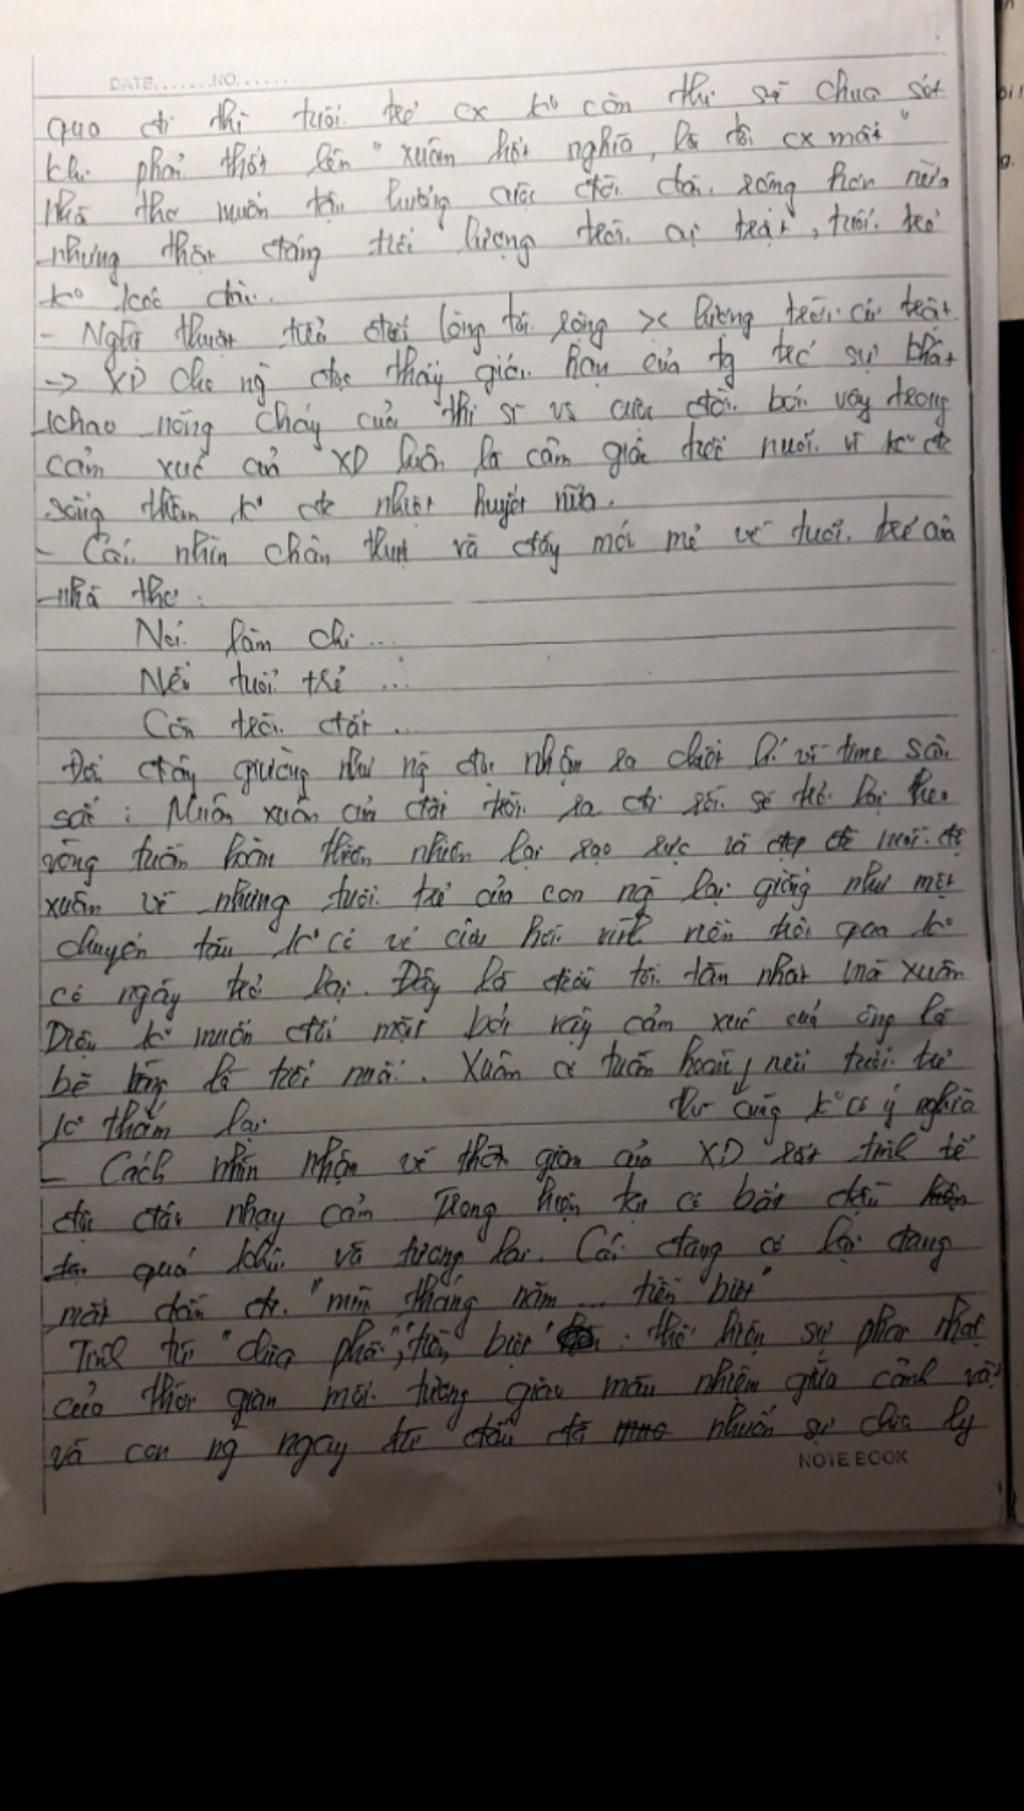 DATE.......NO.......
qua đi thì tuổi trẻ cx k° còn thi sĩ chua sót
khi phải thốt lên "xuân hết nghĩa, là tôi cx mất"
Nhà thơ muốn tận hưởng cuộc đời dài rộng hơn nữa
nhưng thật đáng tiếc lượng trời cứ trật, tuổi trẻ
k° kéo dài.
- Nghệ thuật tiểu đối lòng tôi rộng >< lượng trời cứ trật
-> XD cho ng đọc thấy giới hạn của tg trc sự khát
khao nồng cháy của thi sĩ vs cuộc đời bởi vậy trong
cảm xúc của XD luôn là cảm giác tiếc nuối vì k° đc
sống thêm k° đc nhiệt huyết nữa.
- Cái nhìn chân thực và đầy mới mẻ về tuổi trẻ của
nhà thơ:
Nói làm chi ...
Nếu tuổi trẻ ...
Còn trời đất ...
Đới đây giường như ng đọc nhận ra chân lí về time sâu
sắc: Mùa xuân của đất trời ra đi rồi sẽ trở lại theo
vòng tuần hoàn thiên nhiên lại rạo rực và đẹp đẽ mỗi độ
xuân về nhưng tuổi trẻ của con ng lại giống như một
chuyến tàu k° có vé cứu hồi một nên trôi qua k°
có ngày trở lại. Đây là điều tồi tàn nhất mà xuân
Diệu k° muốn đối mặt bởi vậy cảm xúc của ông là
bẽ bàng là tiếc nuối. Xuân có tuần hoàn, nếu tuổi trẻ
k° thắm lại thì cũng k° có ý nghĩa
- Cách nhìn nhận về thời gian của XD rất tinh tế
độc đáo nhạy cảm Trong hiện tại có bắt đầu
quá khứ và tương lai. Cái đang có lại đang
mất dần đi. "mùi tháng năm ... tiễn biệt"
Tính từ "chia phôi", "tiễn biệt" : thể hiện sự phai nhạt
của thời gian mối tương giao mầu nhiệm giữa cảnh vật
và con ng ngay từ đầu đã nhuốm sự chia ly
NOTEBOOK